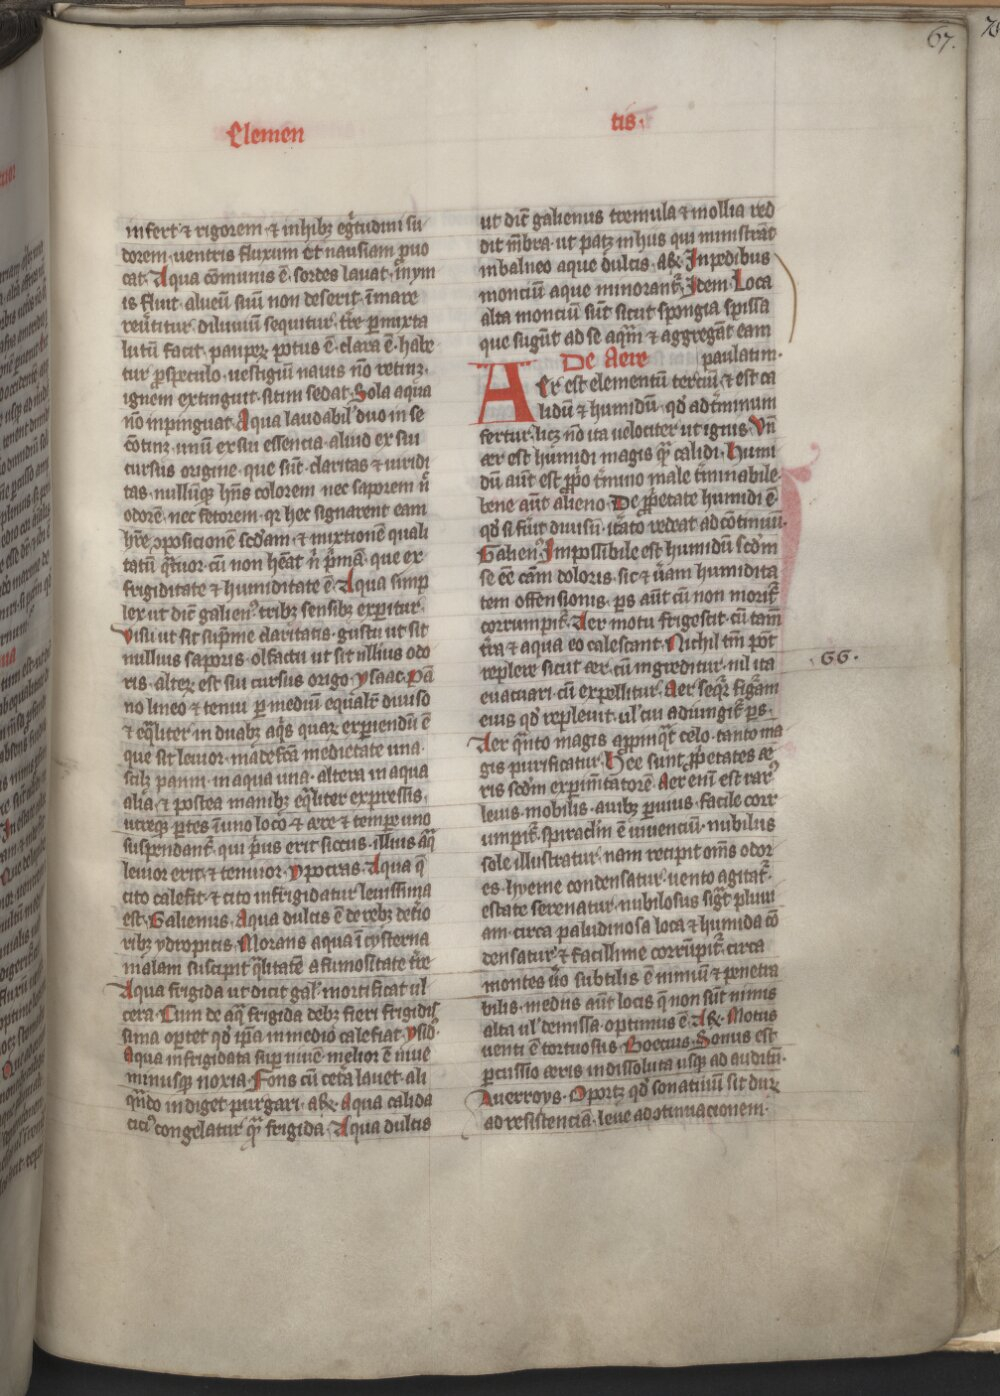 67.
Elemen
tis.
infert ⁊ rigorem ⁊ inhibꝫ egͥtudini su
dorem uentris fluxum et nausiam ꝓuo
cat. Aqua cōmunis ē. sordes lauat. īnym
is fluit alueū suū non deserit. īmare
reuͥtitur. diluuiū sequitur. tͬre ꝑmixta
lutū facit. pauperꝫ potus ē. clara ē. habe
tur ꝓ speculo. uestigiū nauis nō retinꝫ.
ignem extinguit. sitim sedat. Sola aqua
nō inpinguat. Aqua laudabil' duo in se
cōtinꝫ unū ex sui essencia. aliud ex sui
cursus origine. que sūt claritas ⁊ uiridi
tas. nullūqꝫ hn̄s colorem nec saporem n̄
odorē. nec fetorem. qꝛ hec signarent eam
hr̄e ꝯposicionē scd̓am. ⁊ mixtionē quali
tatū qͣtuor. cū non heāt n̄ pͥmā. que ex
frigiditate ⁊ humiditate ē. Aqua simp
lex ut dict̄ galienꝰ. tribꝫ sensibꝫ experitur.
Visu ut sit sup̄me claritatis. gustu ut sit
nullius saporis. olfactu ut sit nullius odo
ris. alterꝫ est sui cursus origo. ysaac. Pā
no lineo ⁊ tenui ꝑ mediū equalr̄ diuiso
⁊ eqͣliter in duabꝫ aqͥs quaꝝ experiendū ē
que sit leuior. madefcā medietate una
scilꝫ panni in aqua una. altera in aqua
alia. ⁊ postea manibꝫ eqͣliter expressis.
utreqꝫ ꝑtes ī uno loco ⁊ aere ⁊ tempe uno
suspendant᷑. qui pͥus erit siccus. illius aq̄
leuior erit. ⁊ tenuior. ypocras. Aqua q̄
cito calefit. ⁊ cito infrigidatur leuissima
est. Galienus. Aqua dulcis ē de rebꝫ detͥo
ribꝫ ydropicis. Morans aqua ī cysterna
malam suscipit qͣlitatē a fumositate tͬre
Aqua frigida ut dicit gal'. mortificat ul
cera. Cum de aq̄ frigida debꝫ fieri frigidis
sima oꝑtet qd̓ ip̄a in medio calefiat. ysid̓.
Aqua infrigidata suꝑ niuē melior ē niue
minusqꝫ noxia. Fons cū cetā lauet. ali
qͣndo indiget purgari. ab͞e. Aqua calida
ciciꝰ congelatur qͣ frigida. Aqua dulcis
ut dict̄ galienus tremula ⁊ mollia red
dit mb̄ra. ut patꝫ in hus qui ministrāt
in balneo aque dulcis. ab͞e. In pedibus
monciū aque minorant᷑. Idem. Loca
alta monciū sūt sicut spongia spissa
que sugūt ad se aqͣm ⁊ aggregāt eam
De Aere paulatim.
AEr est elementū terciū. ⁊ est ca
lidū ⁊ humidū. qd̓ ad tͥminum
fertur. licꝫ nō ita uelociter ut ignis. Vn̄
aer est humidi magis qͣ calidi. Humi
dū aūt est ꝓpͥo tͥmino male tͥminabile.
bene aūt alieno. De ꝓpͥetate humidi ē
qd̓ si fuͥit diuisū. itͥato redeat ad cōtinuū.
Galienꝰ. Impossibile est humidū scd̓m
se eē cām doloris. sic ⁊ uͥam humidita
tem offensionis. ꝑs aūt cū non morit᷑
corrumpit᷑. Aer motu frigescit. cū tam̄
tͬra ⁊ aqua eo calescant. Nichil tm̄ pōt
replere sicut aer. cū ingreditur. nil ita
euacuari cū expellitur. Aer seqͥr figͣam
eius qd̓ repleuit. ul' cui adiungit᷑. ꝑs.
Aer qͣnto magis apꝓinqͣt celo. tanto ma
gis purificatur. Hee sunt ꝓpͥetates ae
ris scd̓m exꝑimtatorē. Aer enī est rarꝰ
leuis. mobilis. auibꝫ ꝑuius. facile corr
umpit᷑. spiraclm̄ ē uiuenciū. nubilus
sole illustratur. nam recipit om̄s odor
es. hyeme condensatur. uento agitat᷑.
estate serenatur. nubilosus sigͣt pluui
am. circa paludinosa loca ⁊ humida cō
densatur. ⁊ facillime corrūpit᷑. circa
montes uͦo subtilis ē nimiū ⁊ penetra
bilis. mediis aūt locis q̄ non sūt nimis
alta ul' demissa. optimus ē. ab͞e. Motus
uenti ē tortuosus. Boecius. Sonus est
ꝑcussio aeris indissoluta usqꝫ ad auditū.
Auerroys. Oportꝫ qd̓ sonatiuū sit duꝝ
ad resistenciā. leue ad ꝯtinuacionem.
66.